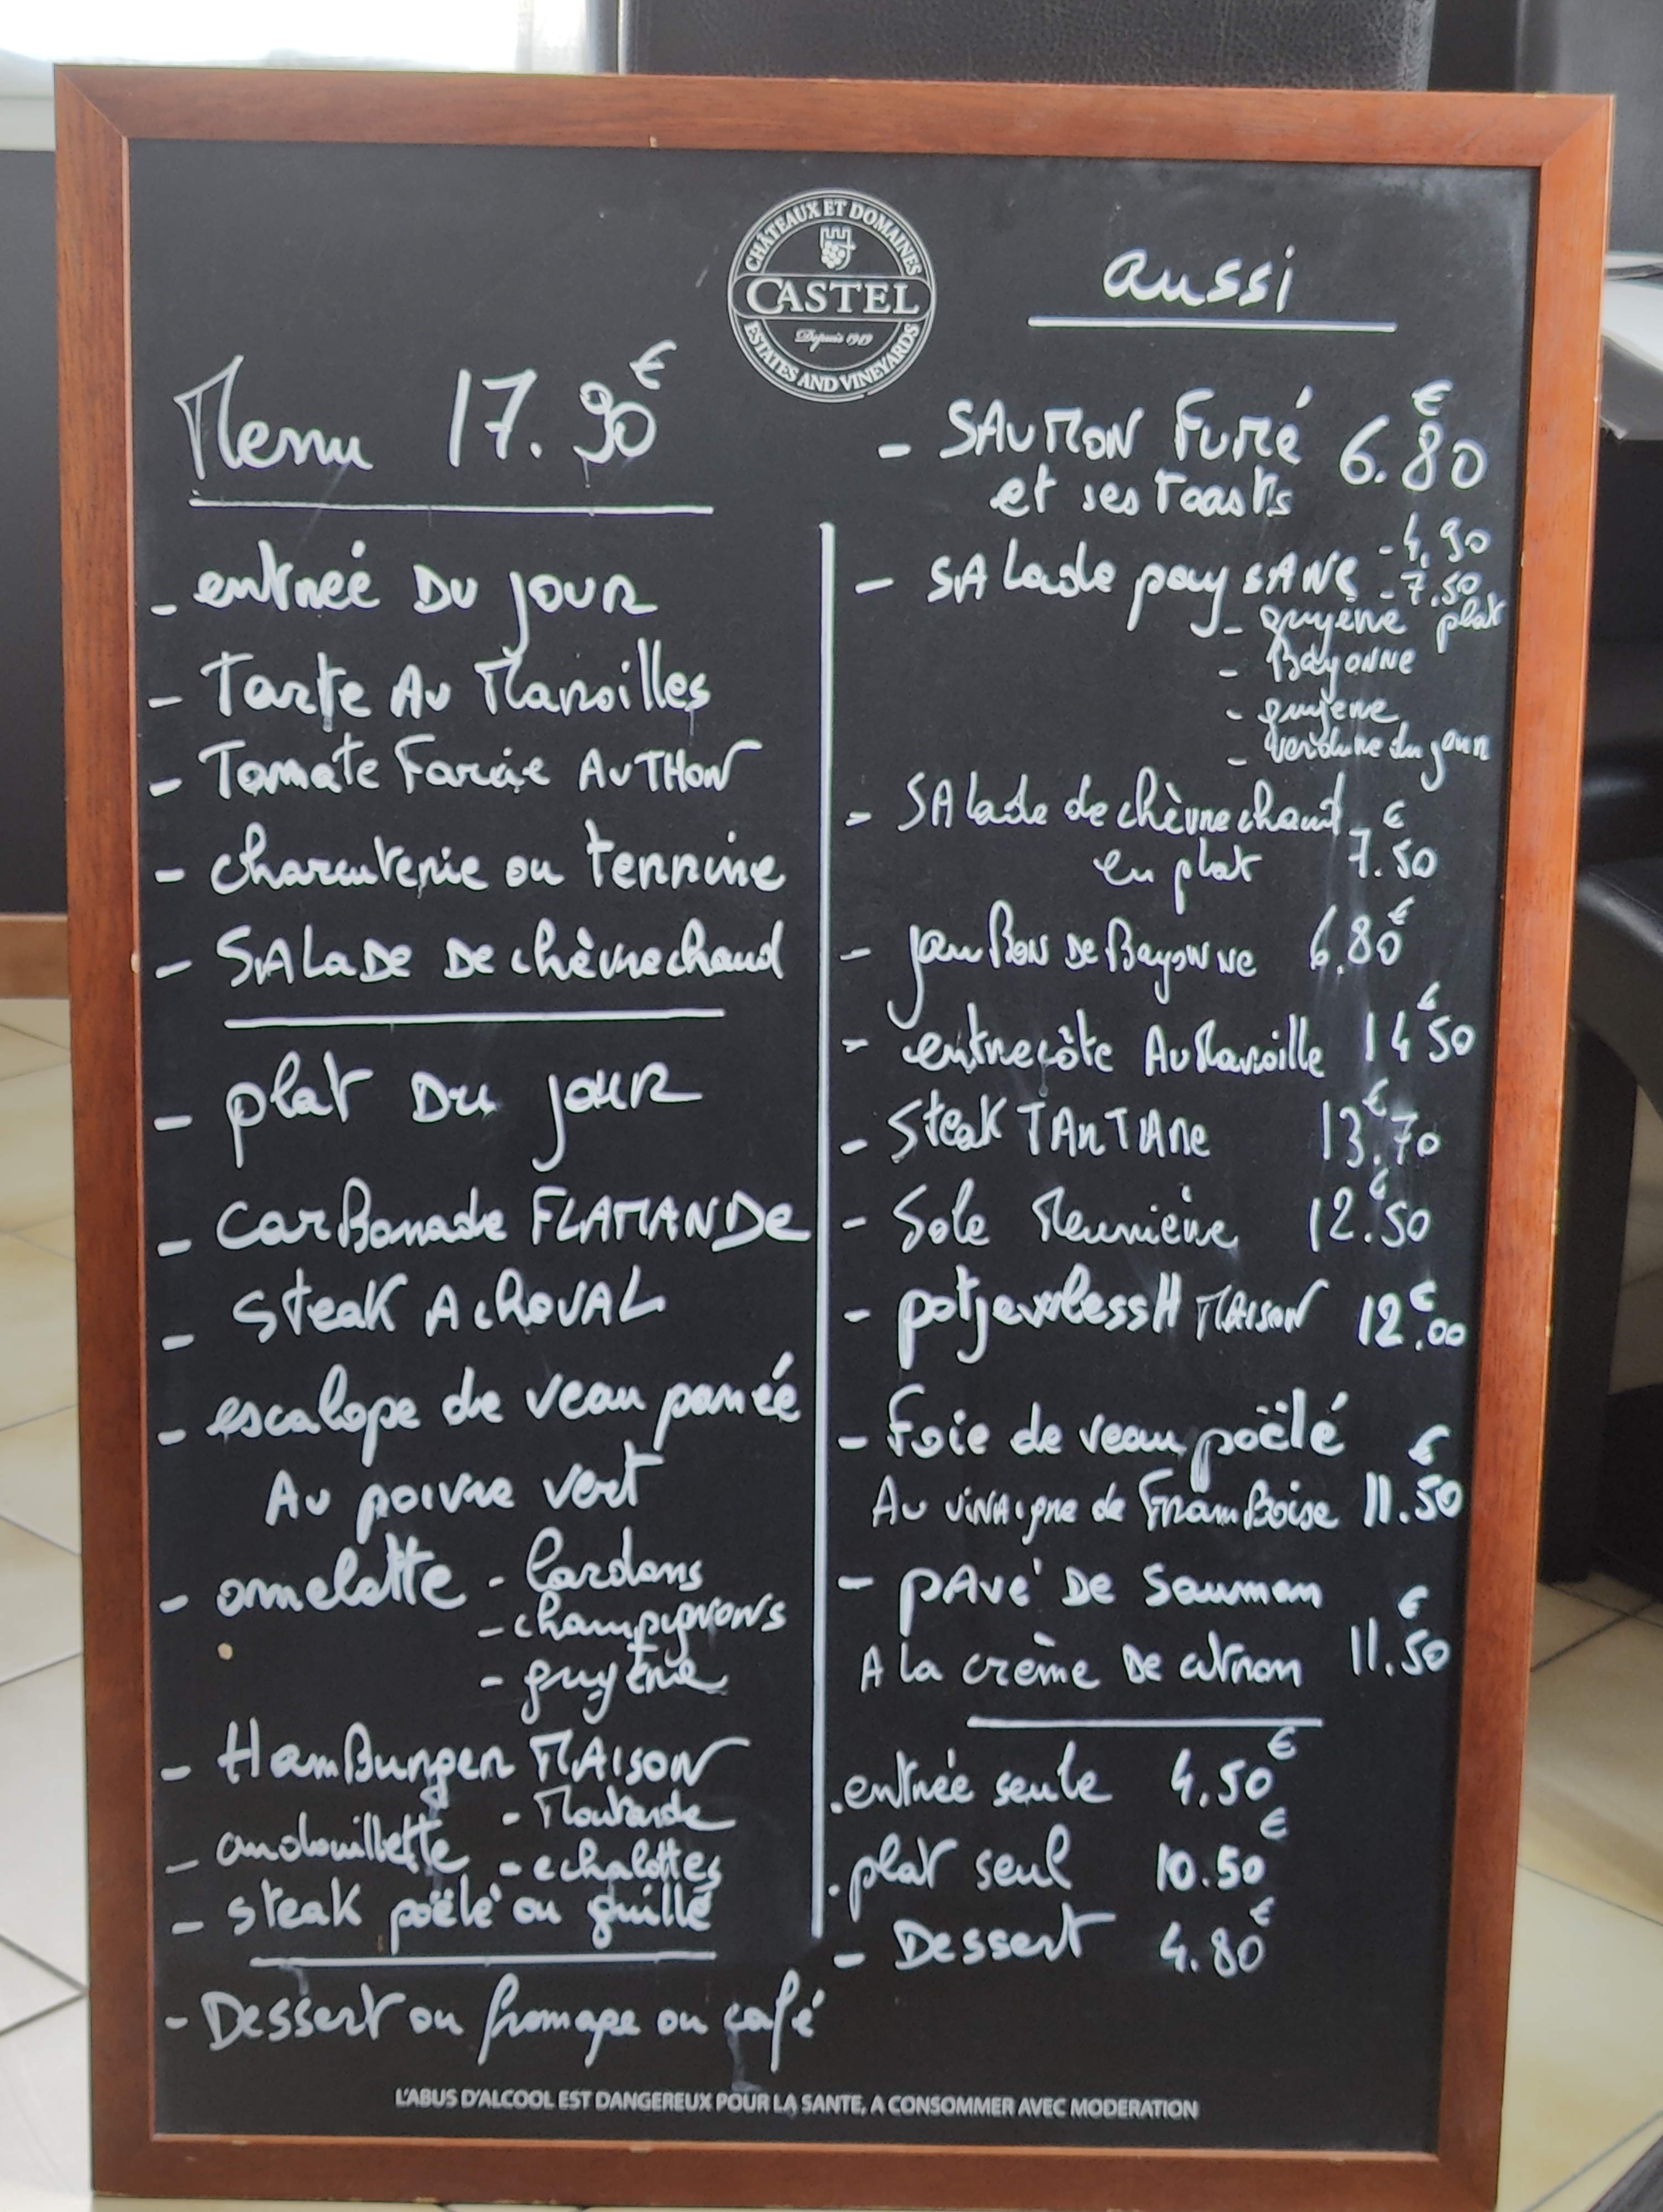 CHÂTEAUX ET DOMAINES
CASTEL
Depuis 1949
ESTATES AND VINEYARDS
Menu 17.90€
- entrée DU JOUR
- Tarte AU Maroilles
- Tomate Farcie AUTHON
- charcuterie ou terrine
- SALADE DE chèvre chaud
- plat DU JOUR
- CarBonade FLAMANDE
- Steak A CheVAL
- escalope de veau panée
Au poivre vert
- omelette - lardons
- champignons
- gruyère
- HamBurger MAISON
- Moutarde
- andouillette - echalottes
- steak poëlé ou grillé
- Dessert ou fromage ou café
aussi
- SAUMON FUMÉ 6.80€
et ses Toasts
- SALade paySANe - 4.90
- 7.50
- gruyère plat
- Bayonne
- gruyère
- verdure du jour
- SALade de chèvre chaud
en plat 7.50€
- jamBon De Bayonne 6.80€
- entrecôte Au Maroille 14€50
- Steak TARTARe 13€.70
- Sole Meunière 12.€50
- potjevvlessH MAISON 12€.00
- Foie de veau poëlé
Au vinaigre de FramBoise 11.50€
- pAvé De Saumon
A la crème De citron 11.50€
. entrée seule 4.50€
. plat seul 10.50€
- Dessert 4.80€
L'ABUS D'ALCOOL EST DANGEREUX POUR LA SANTE, A CONSOMMER AVEC MODERATION